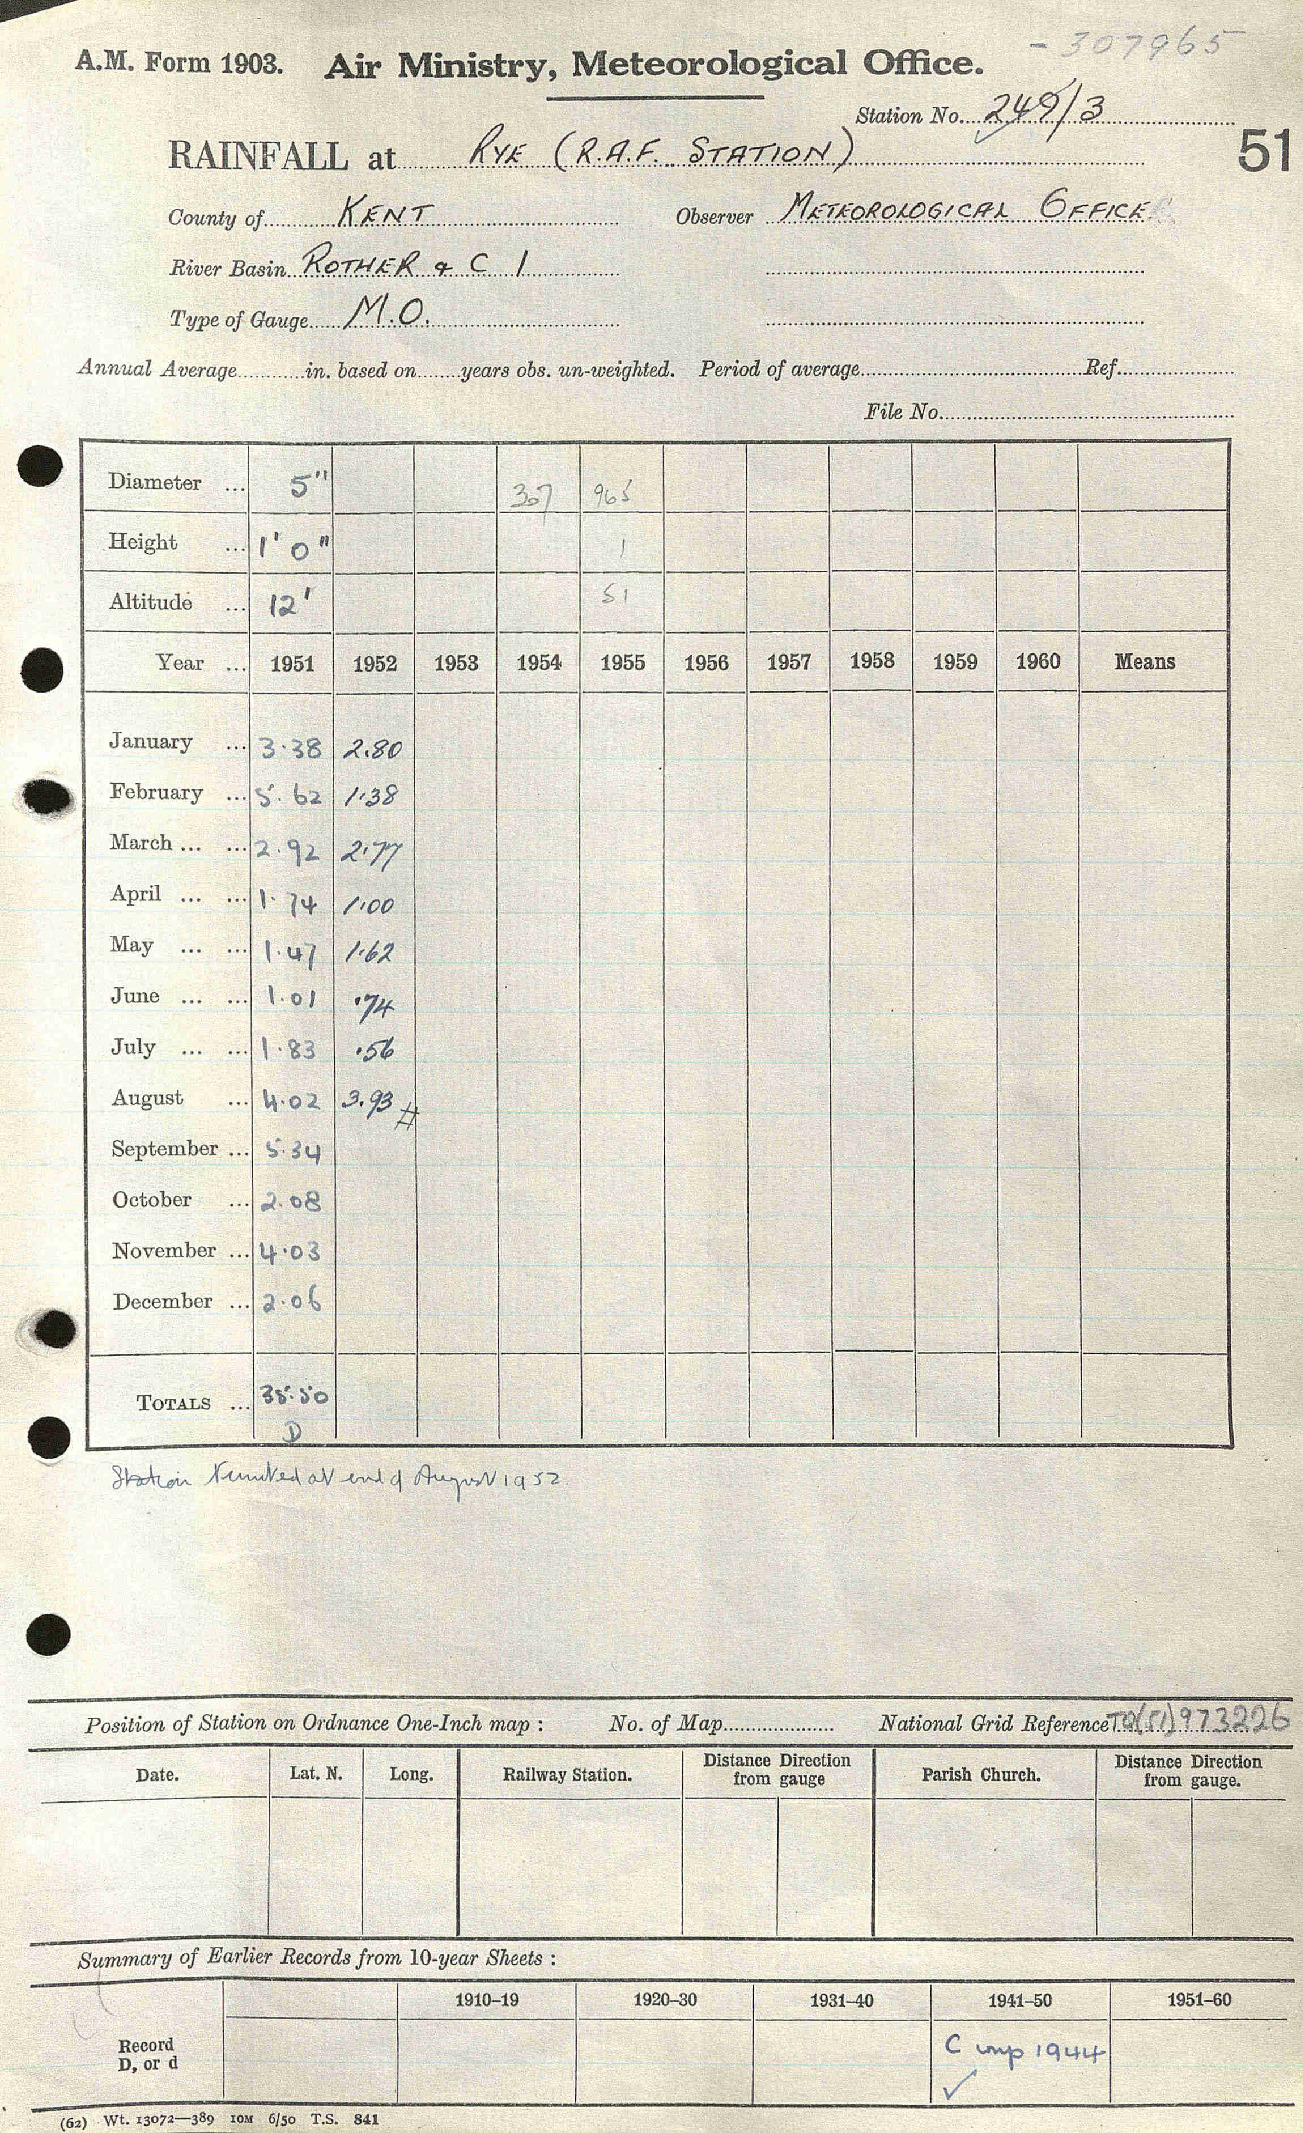 - 307965
A.M. Form 1903. Air Ministry, Meteorological Office.
Station No. 249/3
RAINFALL at RYE (R.A.F. STATION)
51
County of KENT Observer METEOROLOGICAL OFFICE
River Basin ROTHER & C 1
Type of Gauge M.O.
Annual Average in. based on years obs. un-weighted. Period of average Ref.
File No.
Diameter ... 5" 307 965
Height ... 1' 0" 1
Altitude ... 12' 51
Year ... 1951 1952 1953 1954 1955 1956 1957 1958 1959 1960 Means
January ... 3.38 2.80
February ... 5.62 1.38
March ... ... 2.92 2.77
April ... ... 1.74 1.00
May ... ... 1.47 1.62
June ... ... 1.01 .74
July ... ... 1.83 .56
August ... 4.02 3.93 #
September ... 5.34
October ... 2.08
November ... 4.03
December ... 2.06
TOTALS ... 35.50
D
Station at end of August 1952
Position of Station on Ordnance One-Inch map : No. of Map National Grid Reference TQ(51)973226
Date. Lat. N. Long. Railway Station. Distance from gauge Direction Parish Church. Distance from gauge. Direction
Summary of Earlier Records from 10-year Sheets :
1910–19 1920–30 1931–40 1941–50 1951–60
Record D, or d C 1944
✓
(62) Wt. 13072—389 10M 6/50 T.S. 841